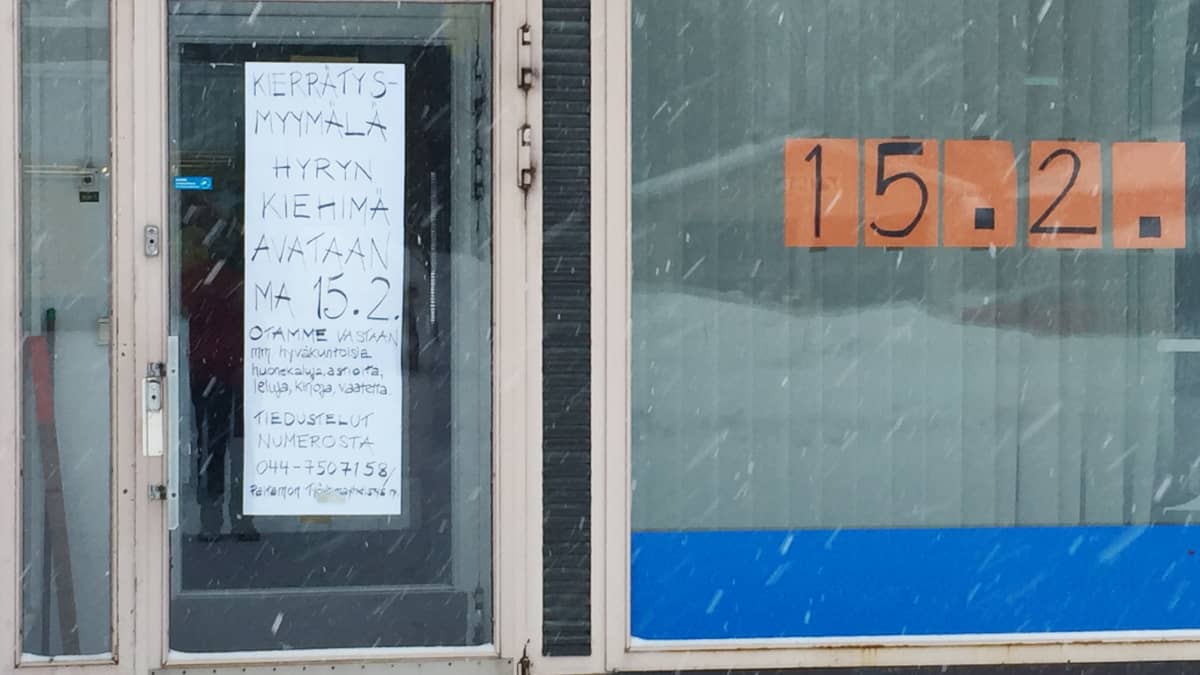 KIERRÄTYS-
MYYMÄLÄ
HYRYN
KIEHIMÄ
AVATAAN
MA 15.2.
OTAMME VASTAAN
mm. hyväkuntoisia
huonekaluja, astioita,
leluja, kirjoja, vaatetta.
TIEDUSTELUT
NUMEROSTA
044-7507158/
15.2.